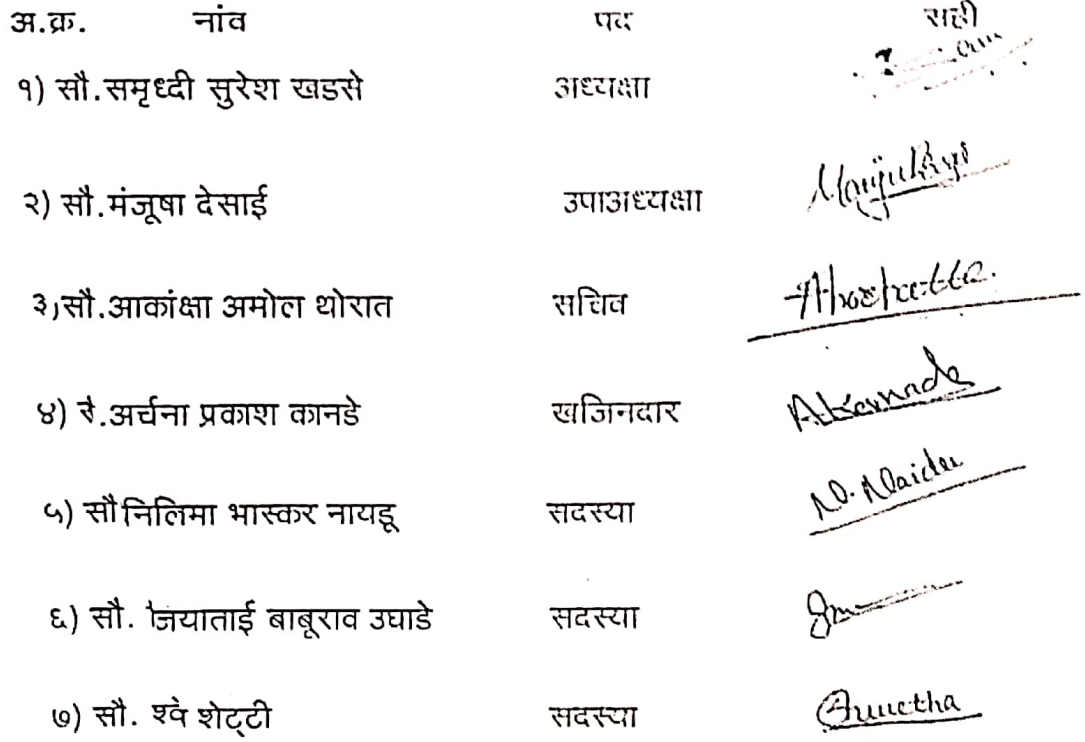 अ.क्र. नांव पद सही
१) सौ.समृध्दी सुरेश खडसे अध्यक्षा
२) सौ.मंजूषा देसाई उपाअध्यक्षा
३)सौ.आकांक्षा अमोल थोरात सचिव
४) सै.अर्चना प्रकाश कानडे खजिनदार AKarnade
५) सौ निलिमा भास्कर नायडू सदस्या N. Naidu
६) सौ. जियाताई बाबूराव उघाडे सदस्या
७) सौ. श्वे शेट्टी सदस्या